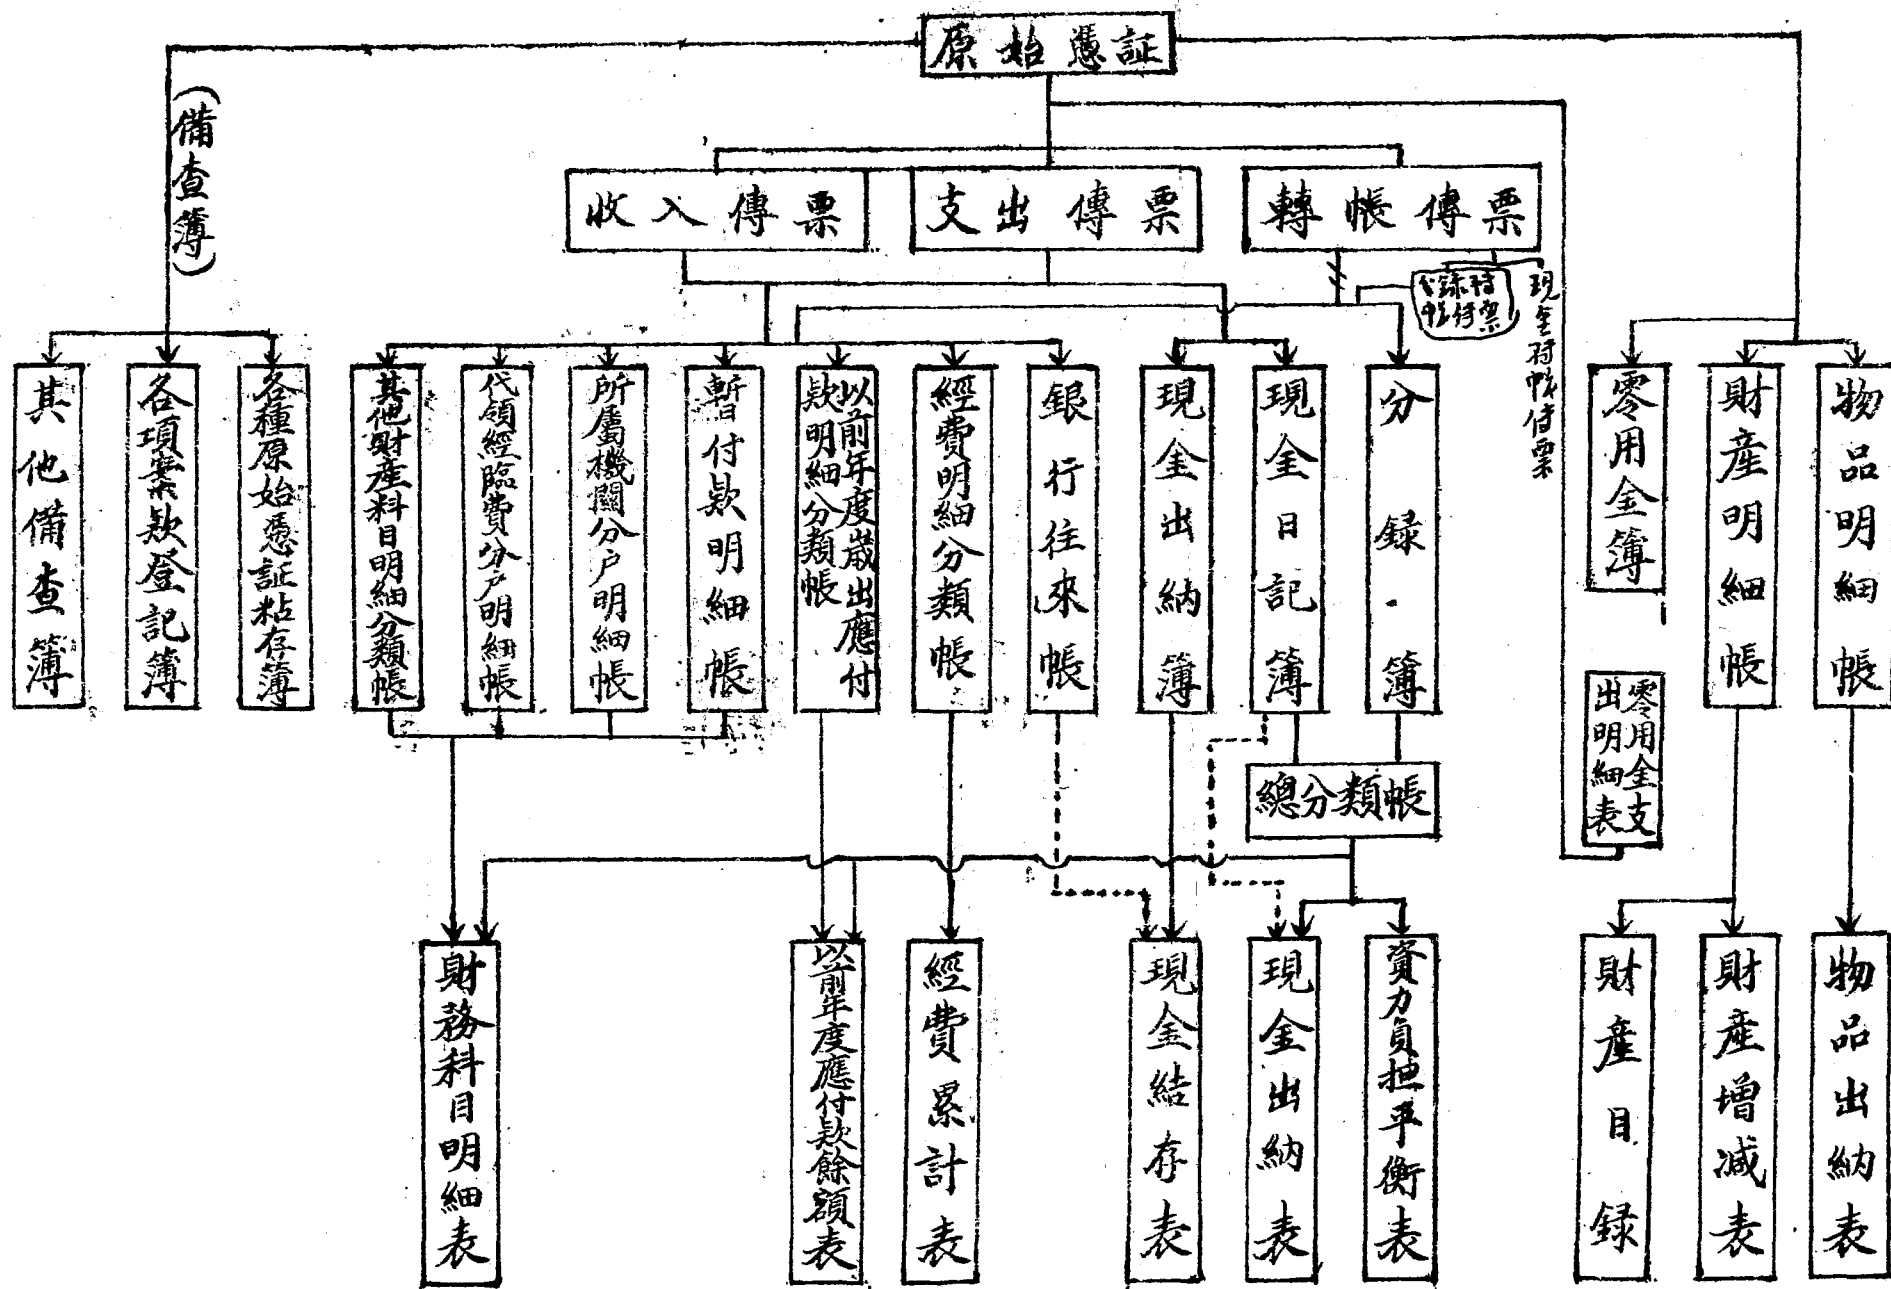 原始憑証
(備查簿)
收入傳票
支出傳票
轉帳傳票
現金轉帳傳票
其他備查簿
各項案款登記簿
各種原始憑証粘存簿
其他財產科目明細分類帳
代領經臨費分户明細帳
所屬機關分户明細帳
暫付款明細帳
以前年度歲出應付
款明細分類帳
經費明細分類帳
銀行往來帳
現金出納簿
現金日記簿
分錄簿
零用金簿
財產明細帳
物品明細帳
零用金支
出明細表
總分類帳
財務科目明細表
以前年度應付款餘額表
經費累計表
現金結存表
現金出納表
資力負担平衡表
財產目録
財產增减表
物品出納表